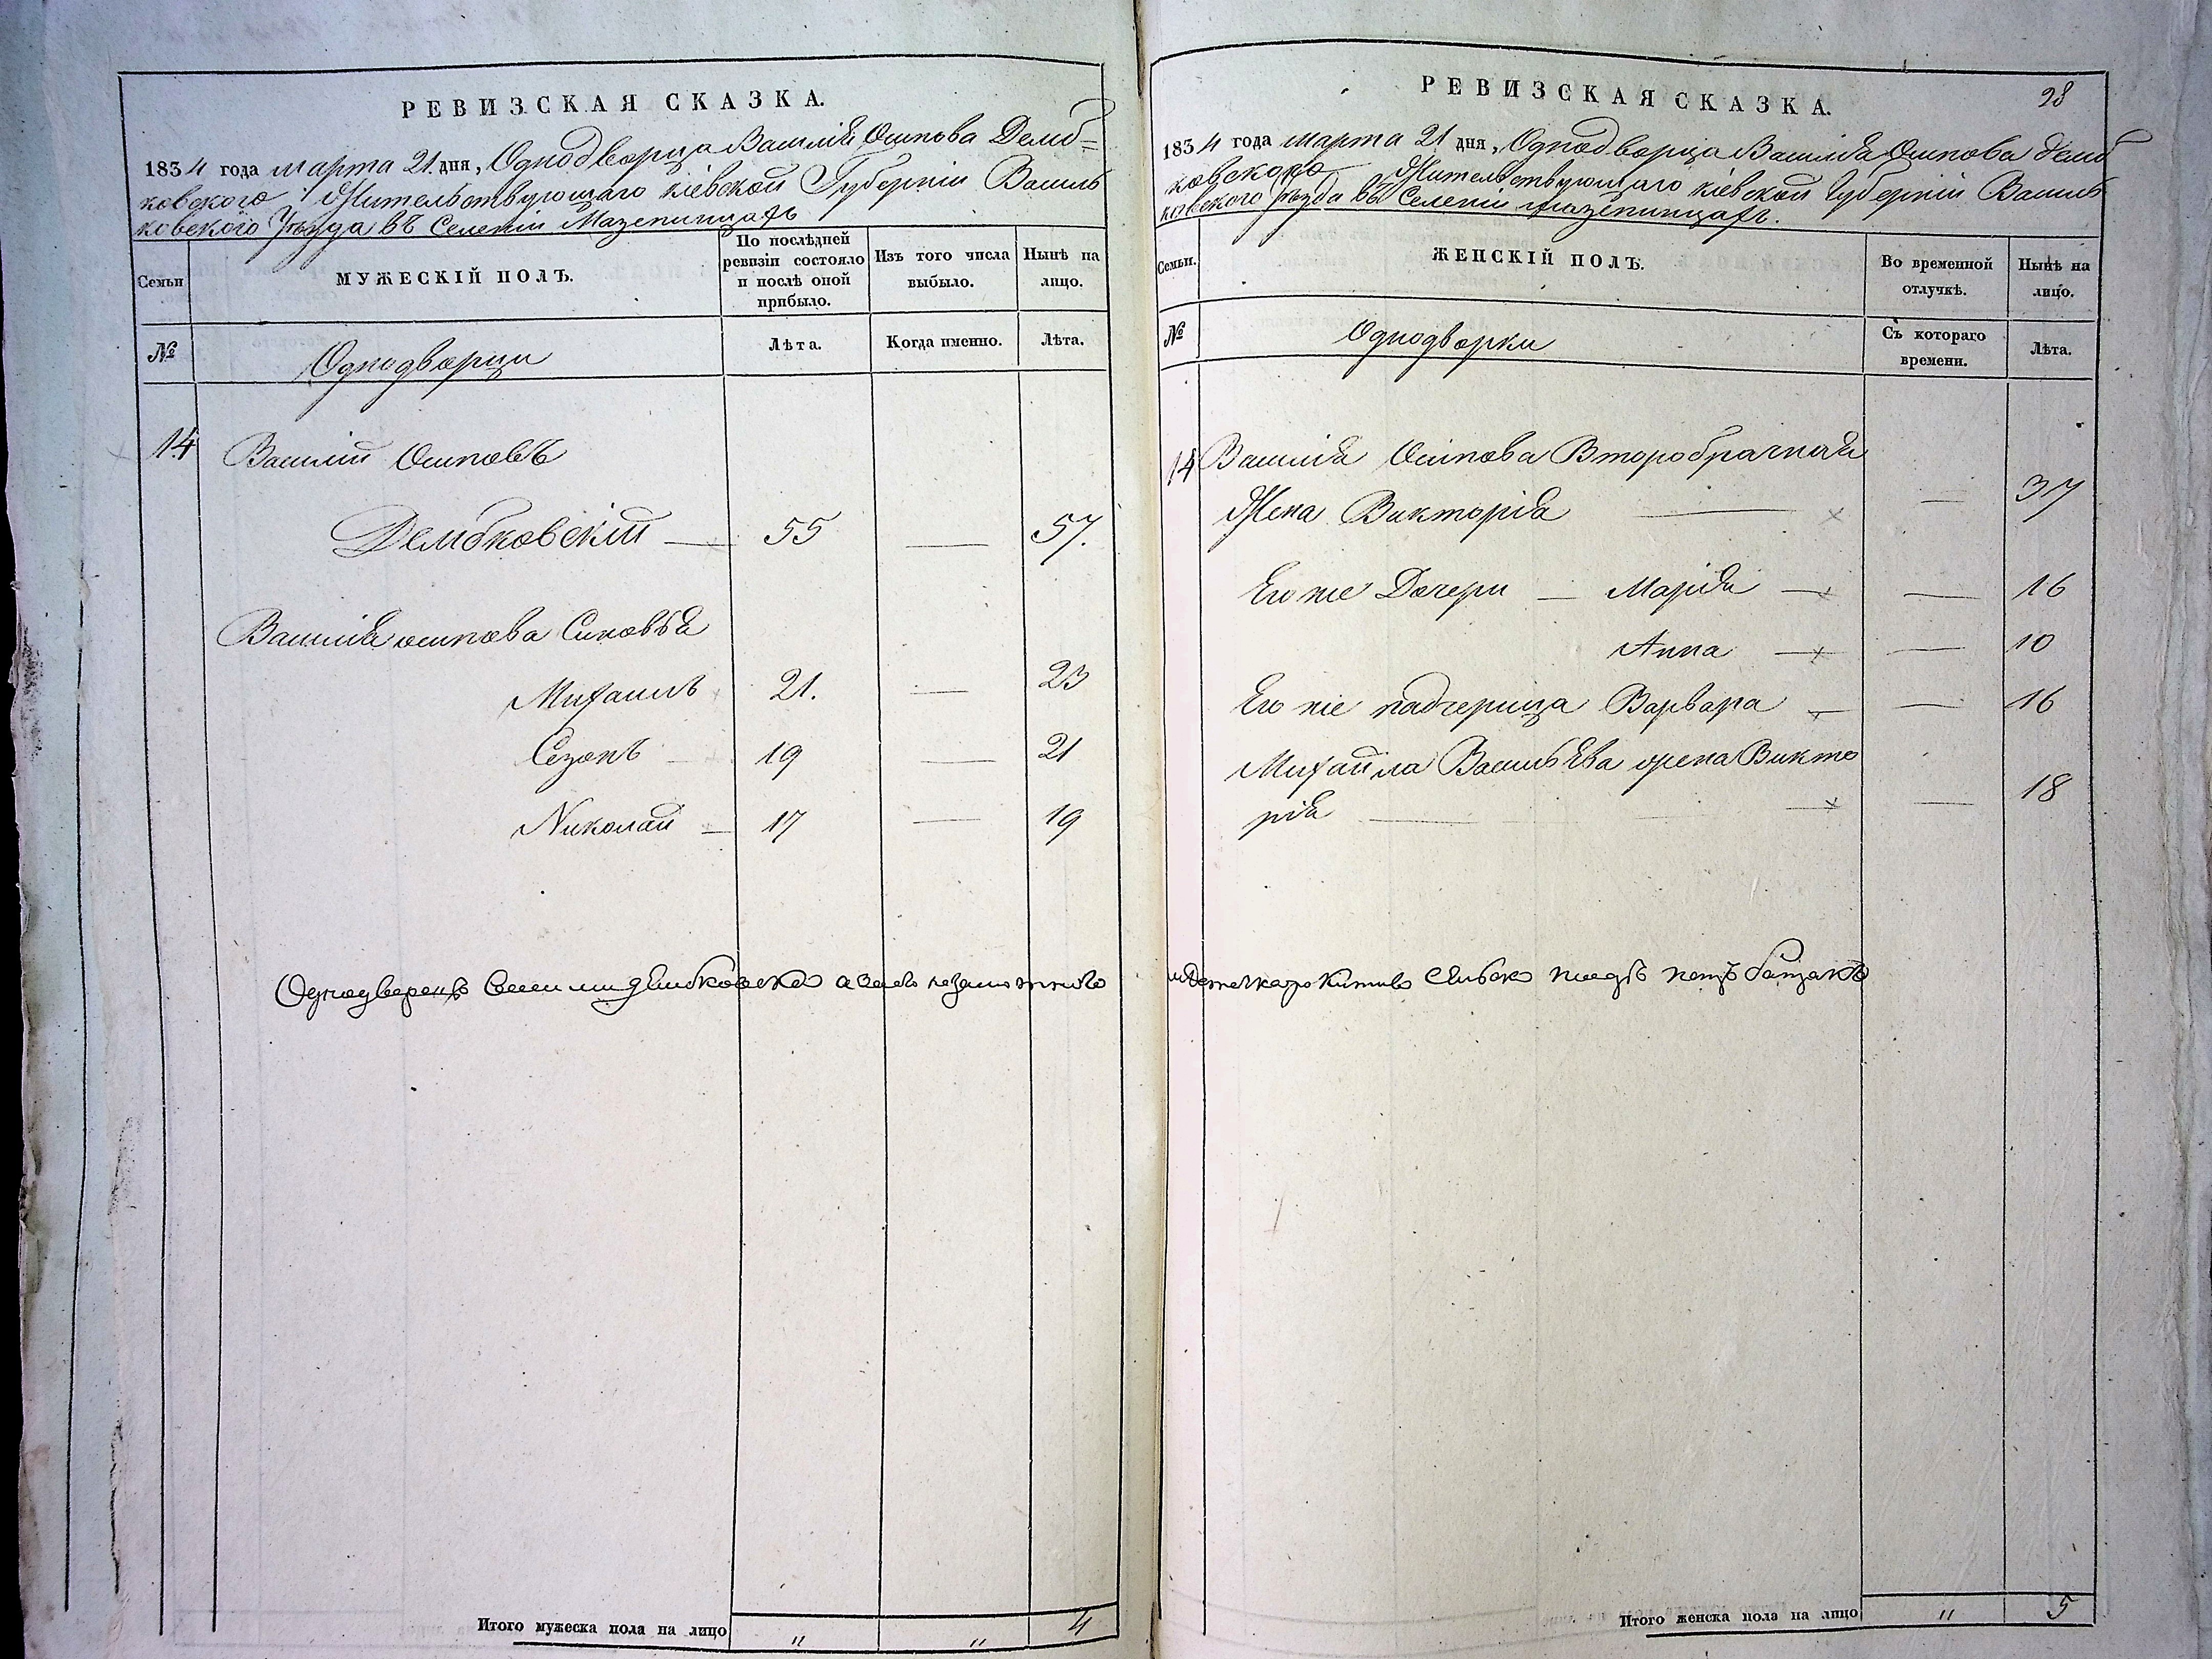 РЕВИЗСКАЯ СКАЗКА.
1834 года марта 21. дня, Однодворца Василія Осипова Демб=
ковского Жительствующаго кіевской Губерніи Василь
ковского Уѣзда въ Селеніи Мазепинцахъ
Семьи
МУЖЕСКІЙ ПОЛЪ.
По послѣдней ревизіи состояло и послѣ оной прибыло.
Изъ того числа выбыло.
Нынѣ на лицо.
№
Однодворци
Лѣта.
Когда именно.
Лѣта.
14
Василій Осиповъ
Дембковскій — 55 — 57.
Василія осипова Синовья
Михаилъ 21. — 23
Сезонъ — 19 — 21
Николай — 17 — 19
Однодворецъ
Итого мужеска пола на лицо " " 4
РЕВИЗСКАЯ СКАЗКА.
98
1834 года марта 21 дня, Однодворца Василія Осипова Демб
ковского Жительствующаго кіевской Губерніи Василь
ковского Уѣзда въ Селеніи Мазепинцахъ.
Семьи.
ЖЕНСКІЙ ПОЛЪ.
Во временной отлучкѣ.
Нынѣ на лицо.
№
Однодворки
Съ котораго времени.
Лѣта.
14 Василія Осипова Второбрачная
Жена Викторія — — 37
Его же Дочери — Марія — — 16
Анна — — 10
Его же падчерица Варвара — — 16
Михайла Васильева жена Викто
рія — — 18
Итого женска пола на лицо " 5